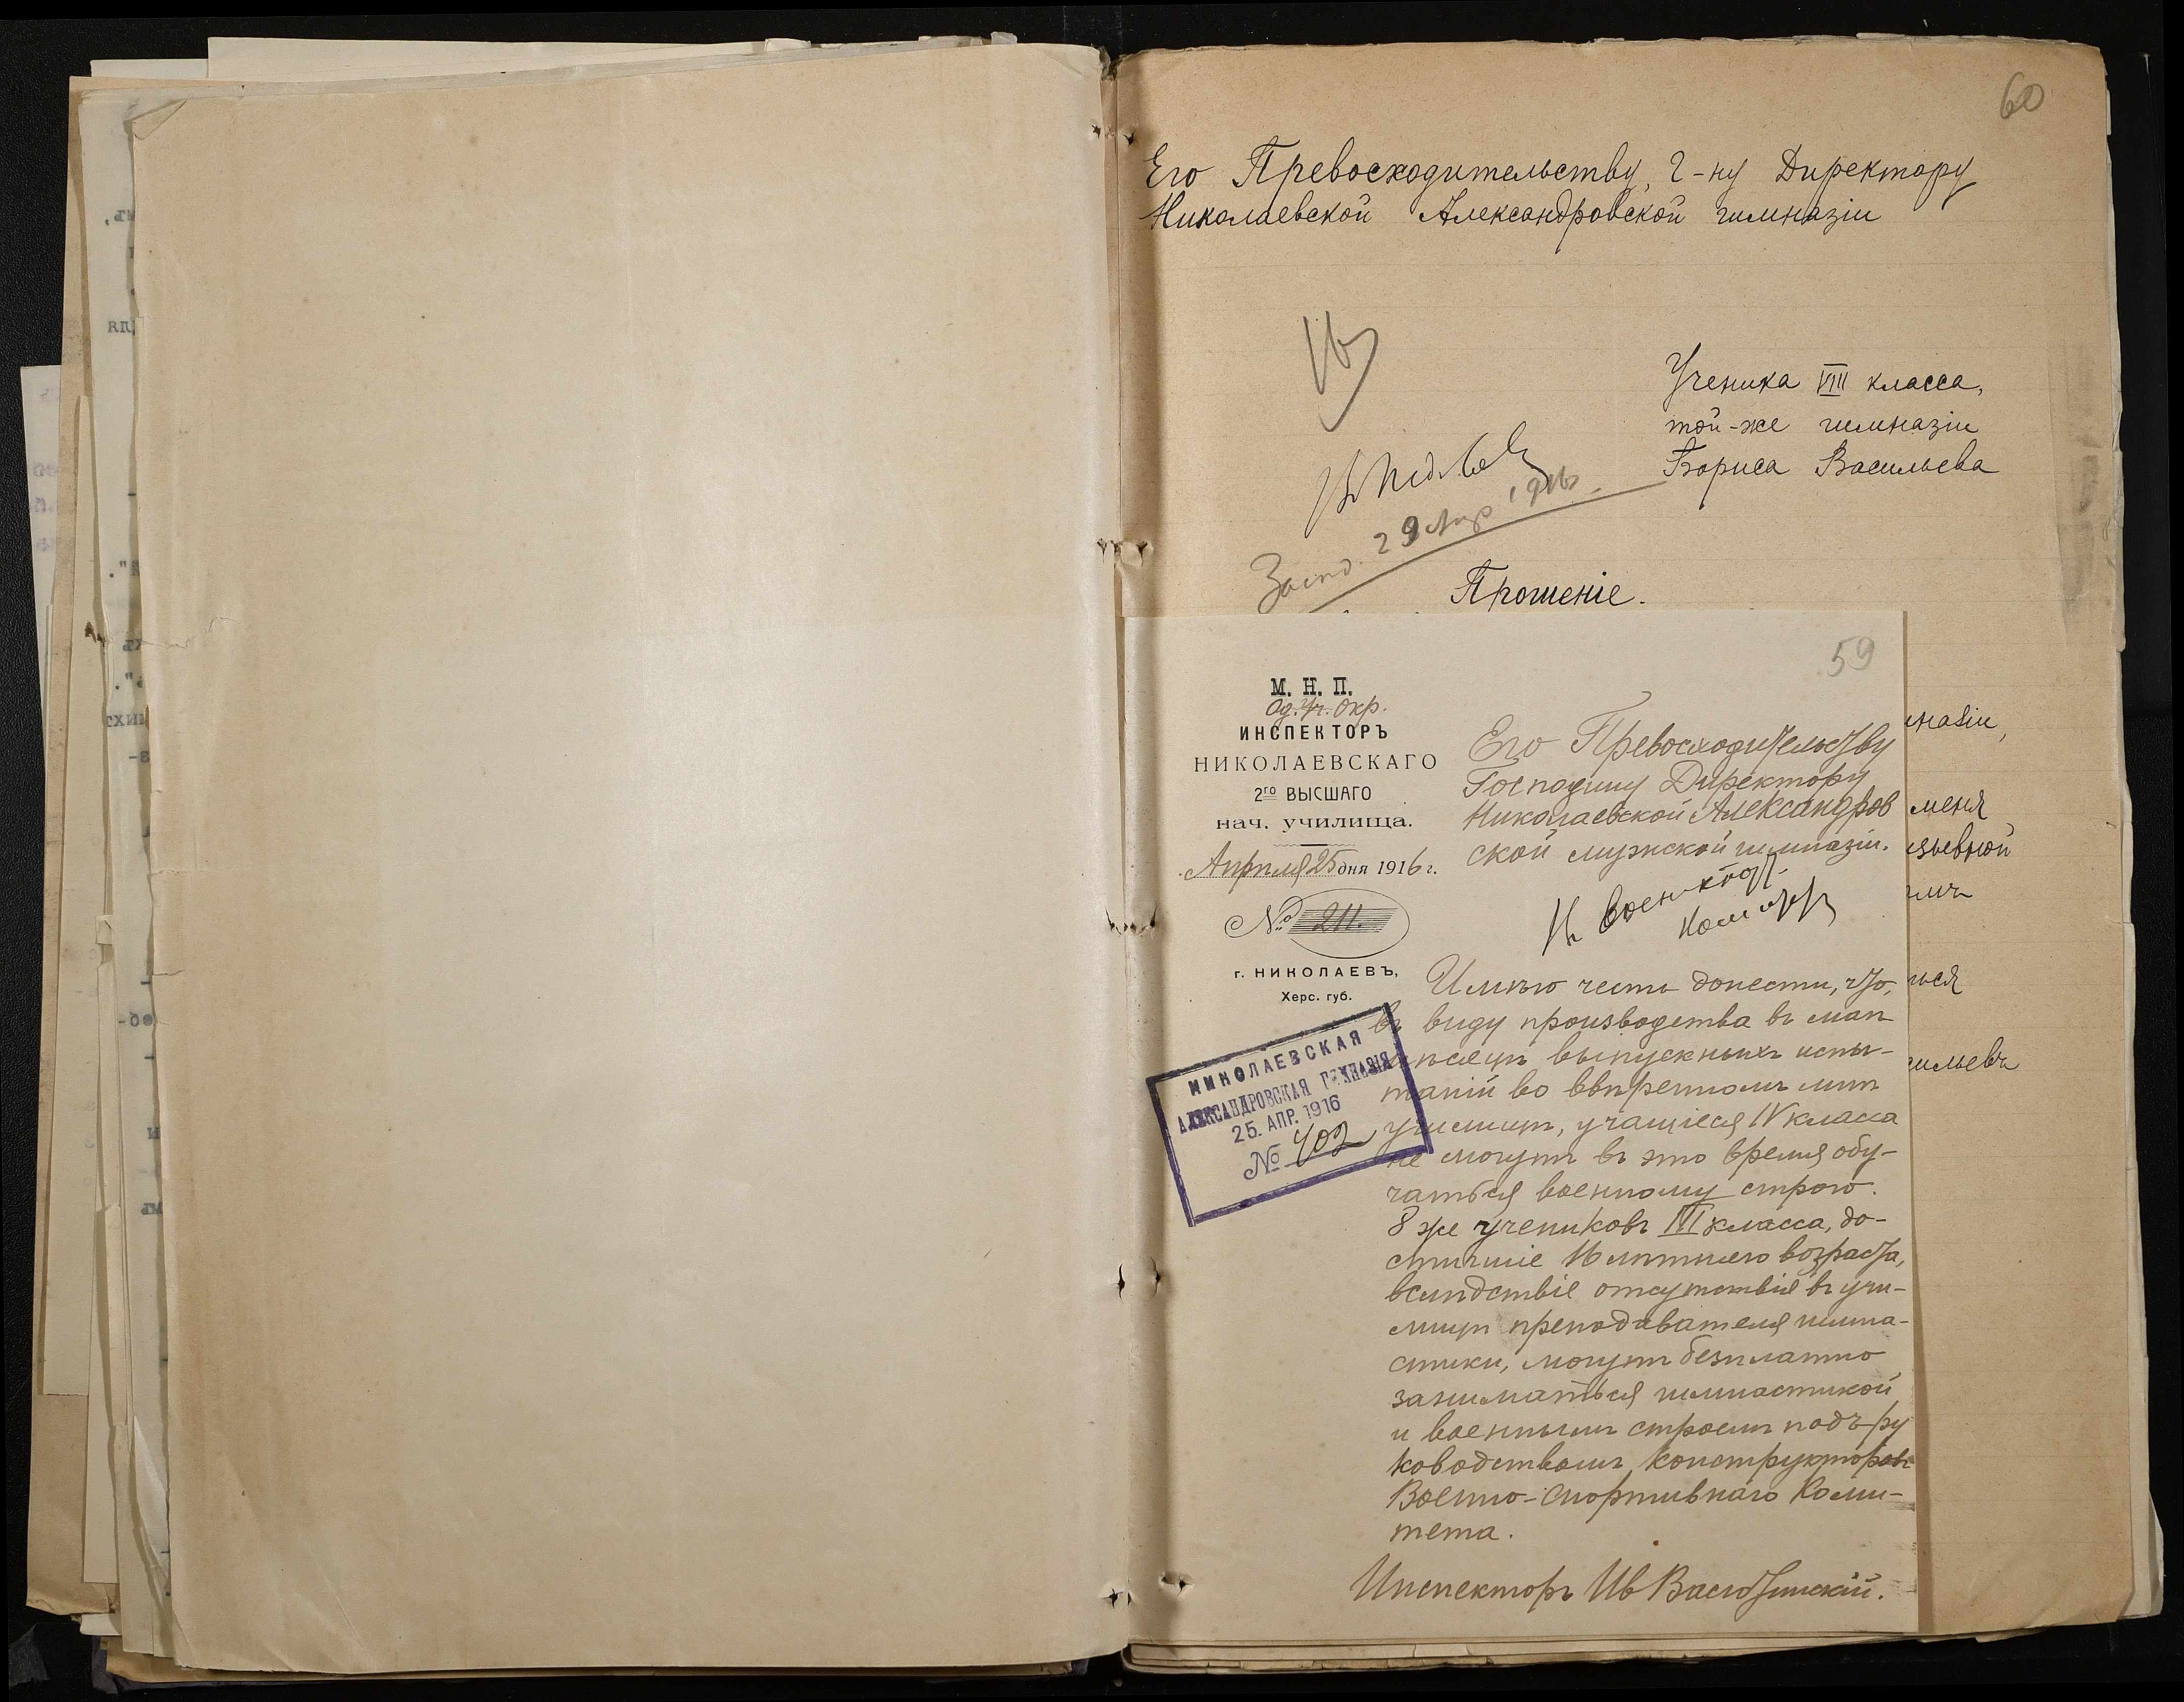 60
Его Превосходительству, Г-ну Директору
Николаевской Александровской гимназіи
Ученика VIII класса,
той-же гимназіи
Бориса Васильева
29 Апр 1916
Прошеніе.
59
М. Н. П.
Од. Уч. Окр.
ИНСПЕКТОРЪ
НИКОЛАЕВСКАГО
2го ВЫСШАГО
нач. училища.
Апрѣля 25 дня 1916 г.
№ 211.
г. НИКОЛАЕВЪ,
Херс. губ.
Его Превосходительству
Господину Директору
Николаевской Александров
ской мужской гимназіи.
НИКОЛАЕВСКАЯ
АЛЕКСАНДРОВСКАЯ ГИМНАЗІЯ
25. АПР. 1916
№ 402
Имѣю честь донести, что,
въ виду производства въ маѣ
мѣсяцѣ выпускныхъ испы-
таній во ввѣренномъ мнѣ
училищѣ, учащіеся IV класса
не могутъ въ это время обу-
чаться военному строю.
8 же учениковъ III класса, до-
стигшіе 16 лѣтняго возраста,
вслѣдствіе отсутствія въ учи-
лищѣ преподавателя гимна-
стики, могутъ безплатно
заниматься гимнастикой
и военнымъ строемъ подъ ру
ководствомъ конструкторовъ
Военно-Спортивнаго Коми-
тета.
Инспекторъ Ив
назіи,
меня
имъ
ься
сильевъ